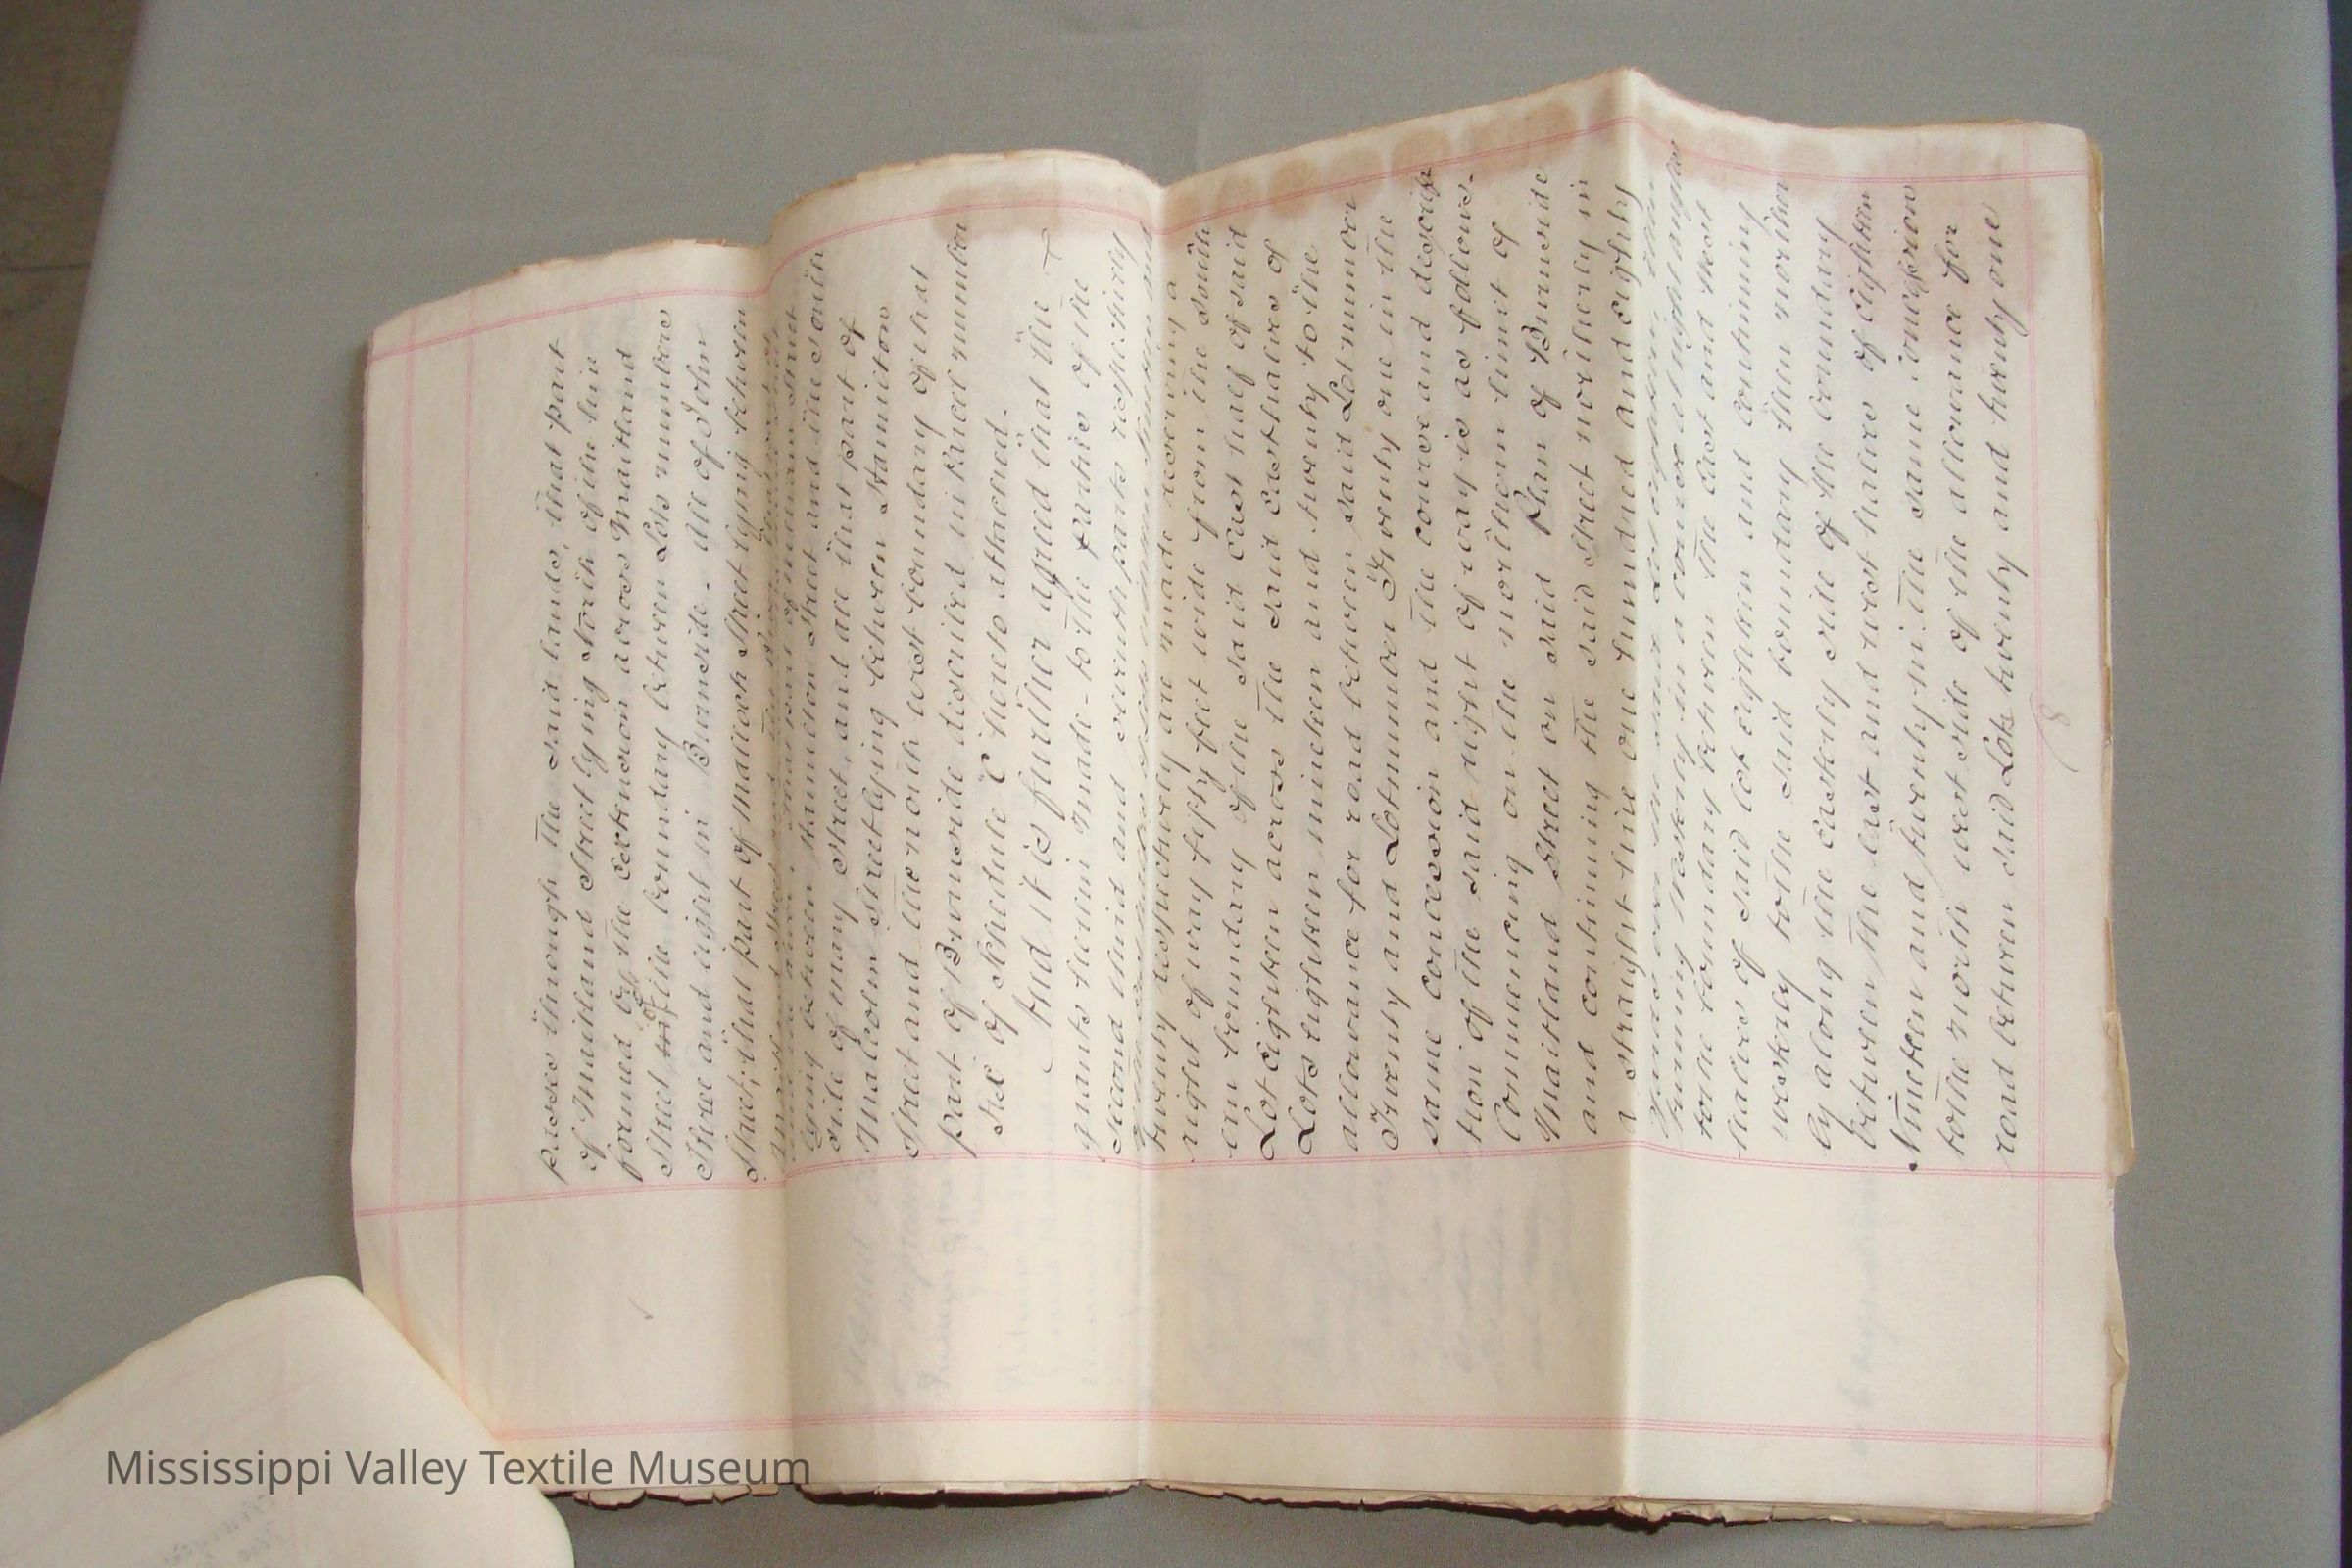 passes through the said lands, that part
of Maitland Street lying North of the line
formed by the extension across Maitland
Street of the boundary between Lots numbers
Three and eight in Burnside. All of John
Street; that part of Malloch Street lying between
lying between Hamilton Street and the south
side of Mary Street, and all that part of
Malcolm Street lying between Hamilton
Street and the north west boundary of that
part of Burnside described in Parcel number
Six of Schedule "C" hereto attached.
And it is further agreed that the
grants herein made to the parties of the
second third and seventh parts respectively
twenty respectively are made reserving a
right of way fifty feet wide from the south
ern boundary of the said east half of said
Lot Eighteen across the said east halves of
Lots eighteen nineteen and twenty to the
allowance for road between said Lot number
Twenty and Lot number Twenty one in the
same concession and the course and descrip
tion of the said right of way is as follows.
Commencing on the northern limit of
Maitland Street on said Plan of Burnside
and continuing the said street northerly in
a straight line one hundred and eighty
running Westerly in a course at right angles
to the boundary between the East and West
halves of said lot eighteen and continuing
westerly to the said boundary then norther
ly along the easterly side of the boundary
between the east and west halves of eighteen
Nineteen and twenty in the same concession
to the north west side of the allowance for
road between said Lots twenty and twenty one
8
Mississippi Valley Textile Museum